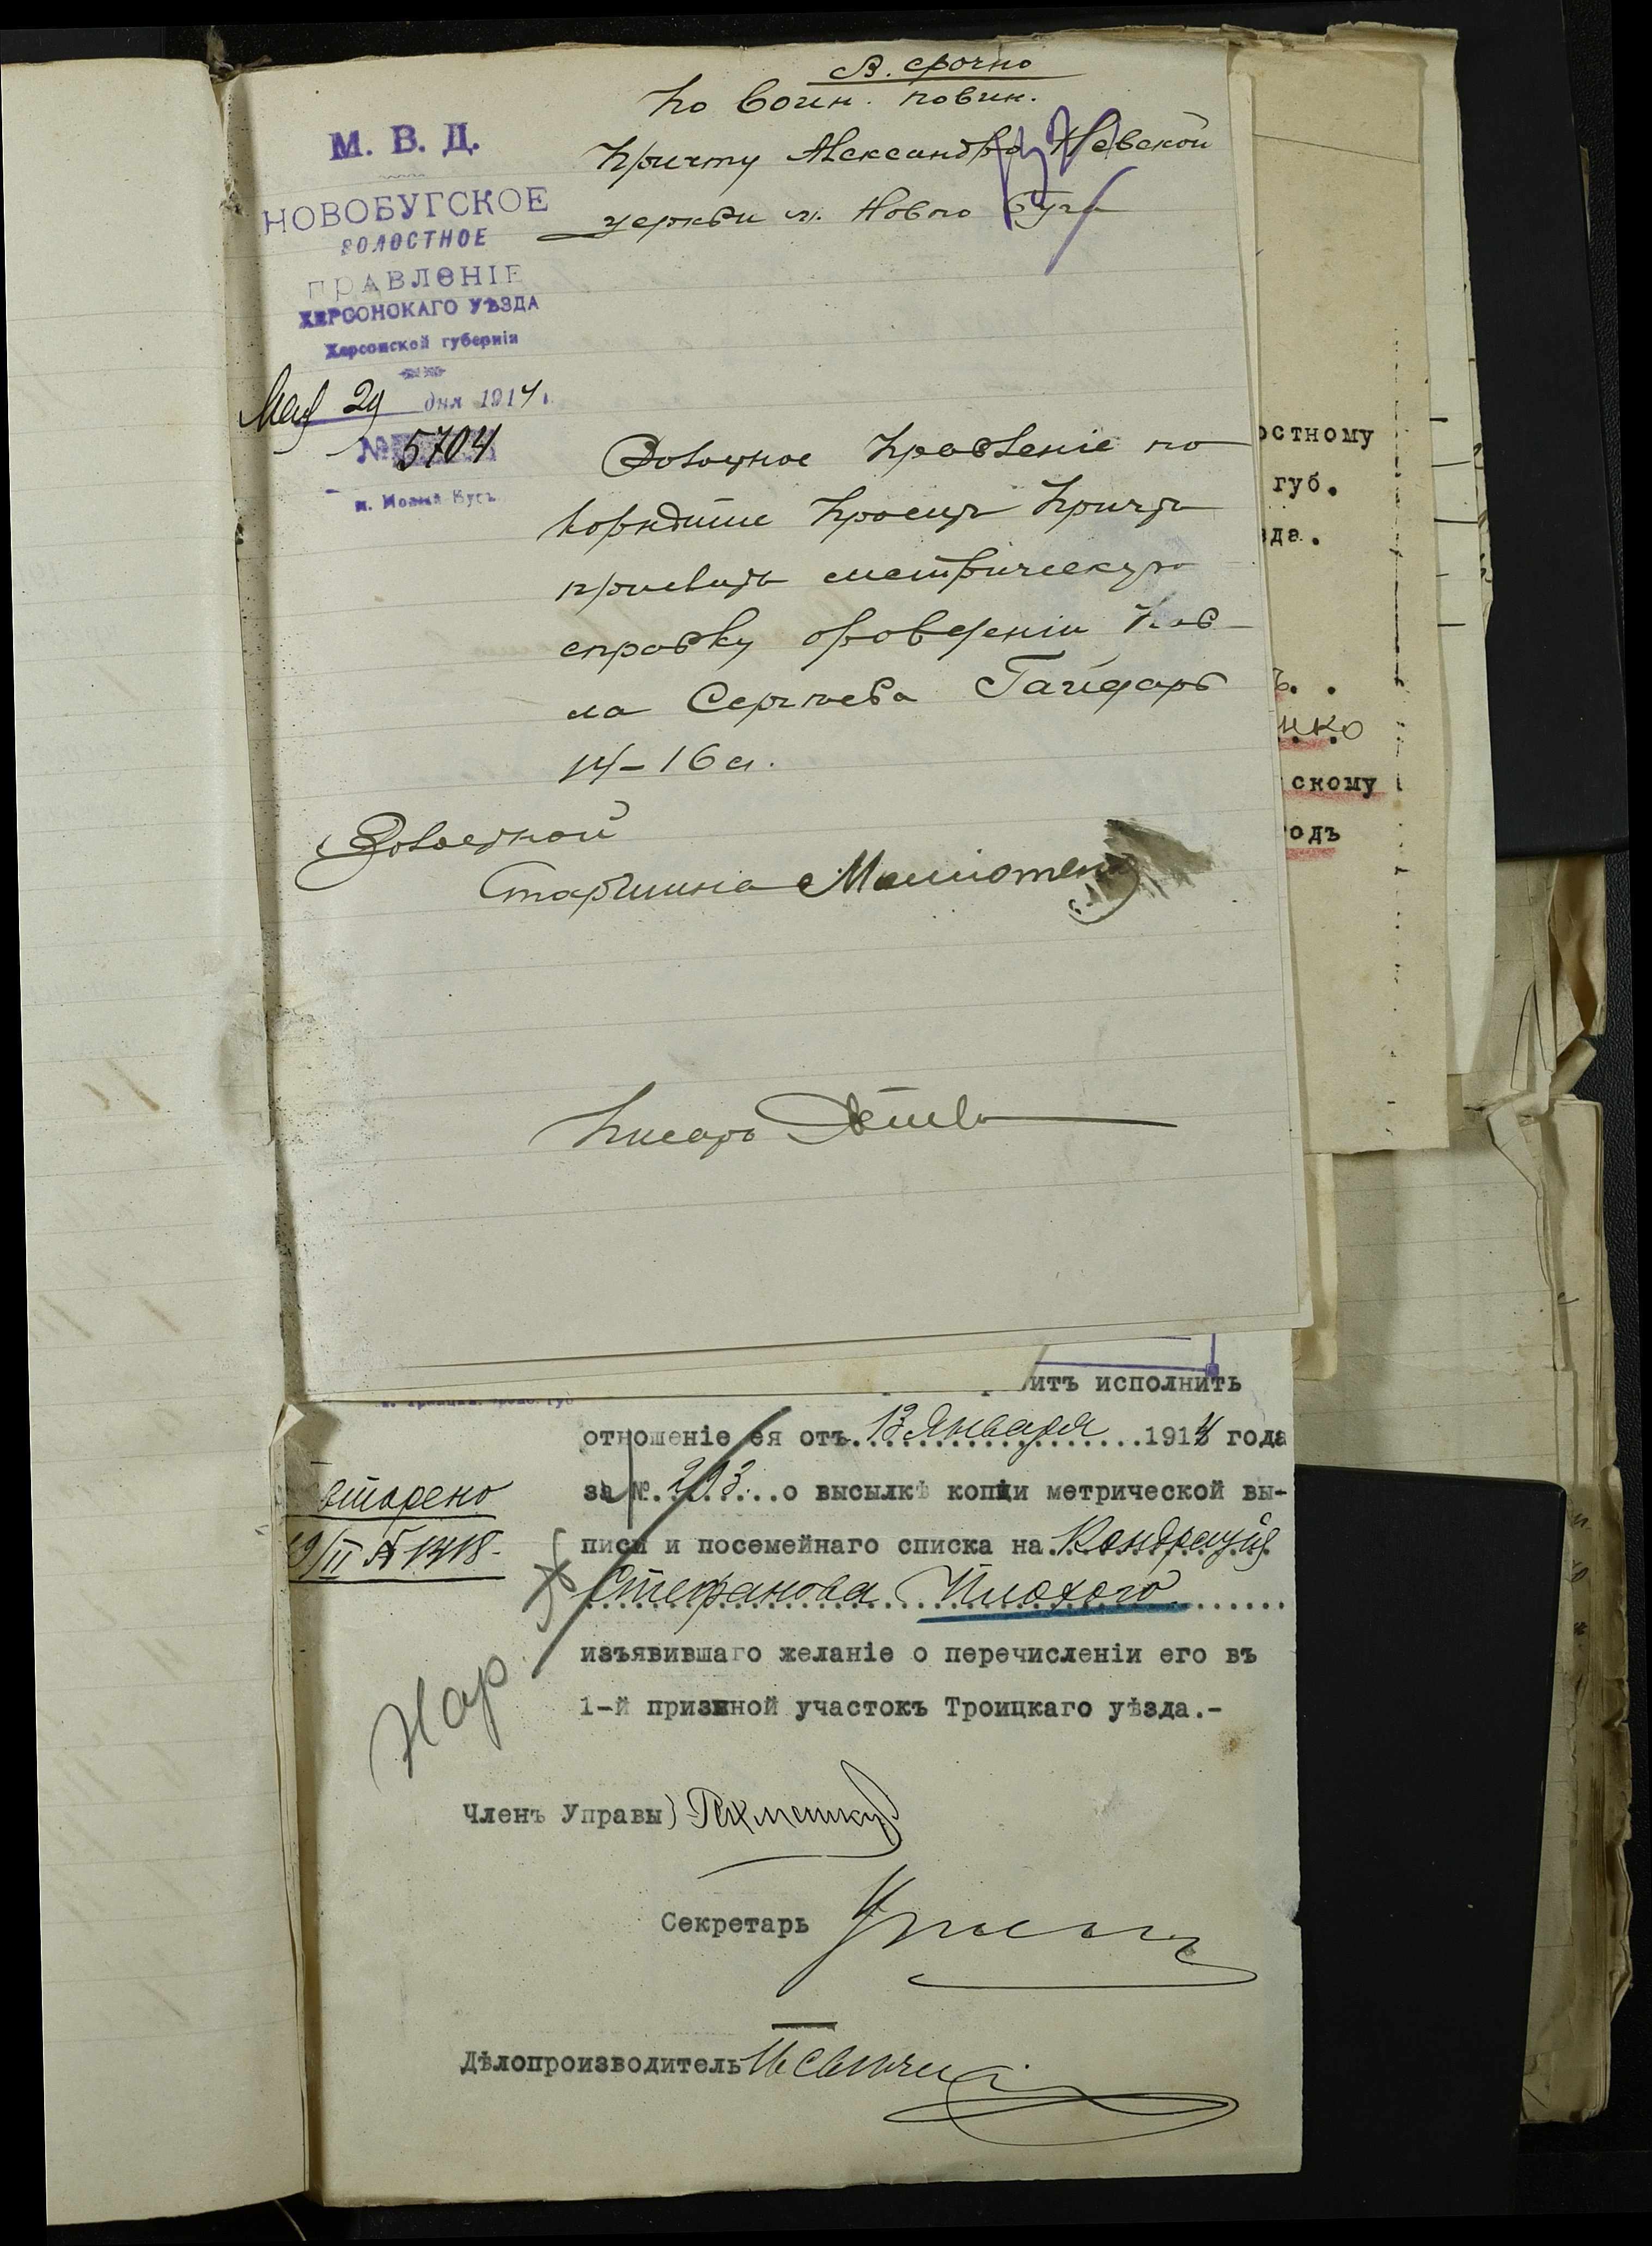 В. срочно
по воин. повин.
М. В. Д.
Причту Александро Невской
НОВОБУГСКОЕ
церкви м. Новаго Буга
ВОЛОСТНОЕ
ПРАВЛЕНІЕ
ХЕРСОНСКАГО УѢЗДА
Херсонской губерніи
Мая 29 дня 1914 г.
№ 5704
м. Новый Бугъ
Волостное Правленіе по
корнѣйше проситъ Причтъ
прислать метрическую
справку о рожденіи Пав-
ла Сергѣева Гайдаръ
14-16 л.
Волостной
Старшина
Писарь
остному
губ.
зда.
ъ. .
нко
скому
одъ
итъ исполнить
отношеніе ея отъ 13 Января 1914 года
за № 293 о высылкѣ копіи метрической вы-
писи и посемейнаго списка на Кондратія
Стефанова Плохого
изъявившаго желаніе о перечисленіи его въ
1-й призывной участокъ Троицкаго уѣзда.-
19/II № 1318.
Нар.
Членъ Управы
Секретарь
Дѣлопроизводитель